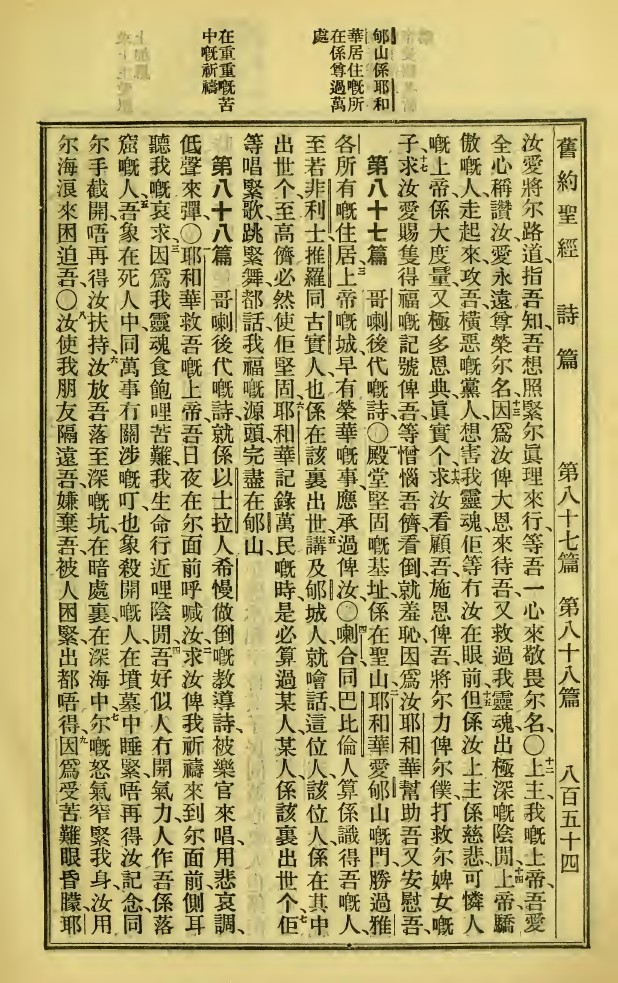 郇山係耶和
華居住嘅所
在係尊過萬
處
在重重嘅苦
中嘅祈禱
舊約聖經 詩篇 第八十七篇 第八十八篇 八百五十四
汝愛將尔路道、指吾知、吾想照緊尔眞理來行、等吾一心來敬畏尔名、〇十二上主、我嘅上帝、吾愛
全心稱讚汝、愛永遠尊榮尔名、十三因爲汝俾大恩來待吾、又救過我靈魂出極深嘅陰間、十四上帝、驕
傲嘅人、走起來攻吾、橫惡嘅黨人、想害我靈魂、佢等冇汝在眼前、十五但係汝上主係慈悲、可憐人
嘅上帝、係大度量、又極多恩典、眞實个、十六求汝看顧吾、施恩俾吾、將尔力俾尔僕、打救尔婢女嘅
子、十七求汝愛賜隻得福嘅記號俾吾、等憎惱吾儕看倒就羞恥、因爲汝耶和華幫助吾、又安慰吾、
第八十七篇 哥喇後代嘅詩、〇殿堂堅固嘅基址、係在聖山、二耶和華愛郇山嘅門、勝過雅
各所有嘅住居、三上帝嘅城、早有榮華嘅事、應承過俾汝、〇四喇合同巴比倫人、算係識得吾嘅人、
至若非利士推羅同古實人、也係在該裏出世、五講及郇城人就噲話、這位人、該位人、係在其中
出世个、至高儕必然使佢堅固、六耶和華記錄萬民嘅時、是必算過某人、某人、係該裏出世个、七佢
等唱緊歌、跳緊舞、都話我福嘅源頭、完盡在郇山、
第八十八篇 哥喇後代嘅詩、就係以士拉人希慢做倒嘅教導詩、被樂官來唱、用悲哀調、
低聲來彈、〇耶和華救吾嘅上帝、吾日夜在尔面前呼喊汝、二求汝俾我祈禱來到尔面前、側耳
聽我嘅哀求、三因爲我靈魂食飽哩苦難、我生命行近哩陰間、四吾好似人冇開氣力、人作吾係落
窟嘅人、五吾象在死人中、同萬事冇關涉嘅叮、也象殺開嘅人、在墳墓中睡緊、唔再得汝記念、同
尔手截開、唔再得汝扶持、六汝放吾落至深嘅坑、在暗處裏、在深海中、七尔嘅怒氣窄緊我身、汝用
尔海浪來困迫吾、〇八汝使我朋友隔遠吾、嫌棄吾、被人困緊、出都唔得、九因爲受苦難、眼昏矇、耶